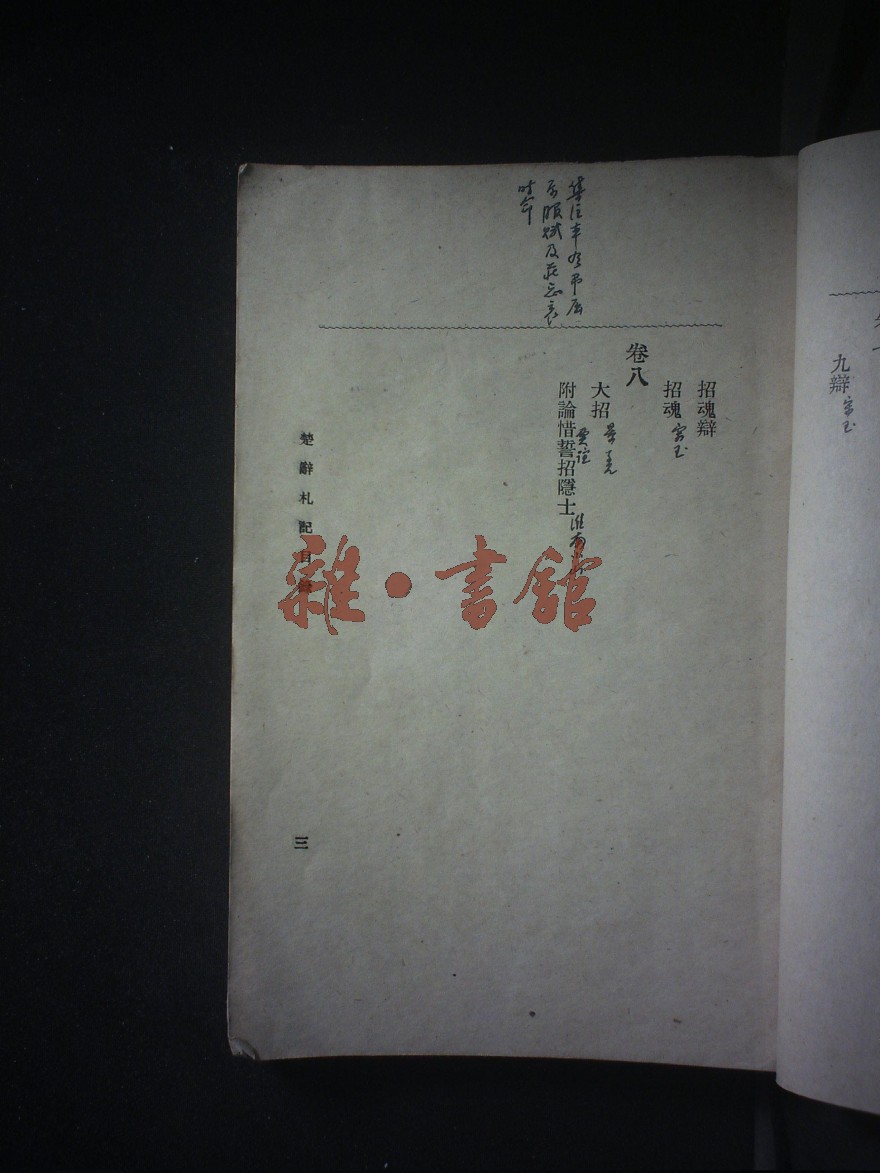 九辯 宋玉
集注本有弔屈
原服賦及莊忌哀
时命
招魂辯
招魂 宋玉
卷八
大招 景差
附論惜誓招隱士 賈誼 淮南
楚辭札記目錄
三
雜·書館